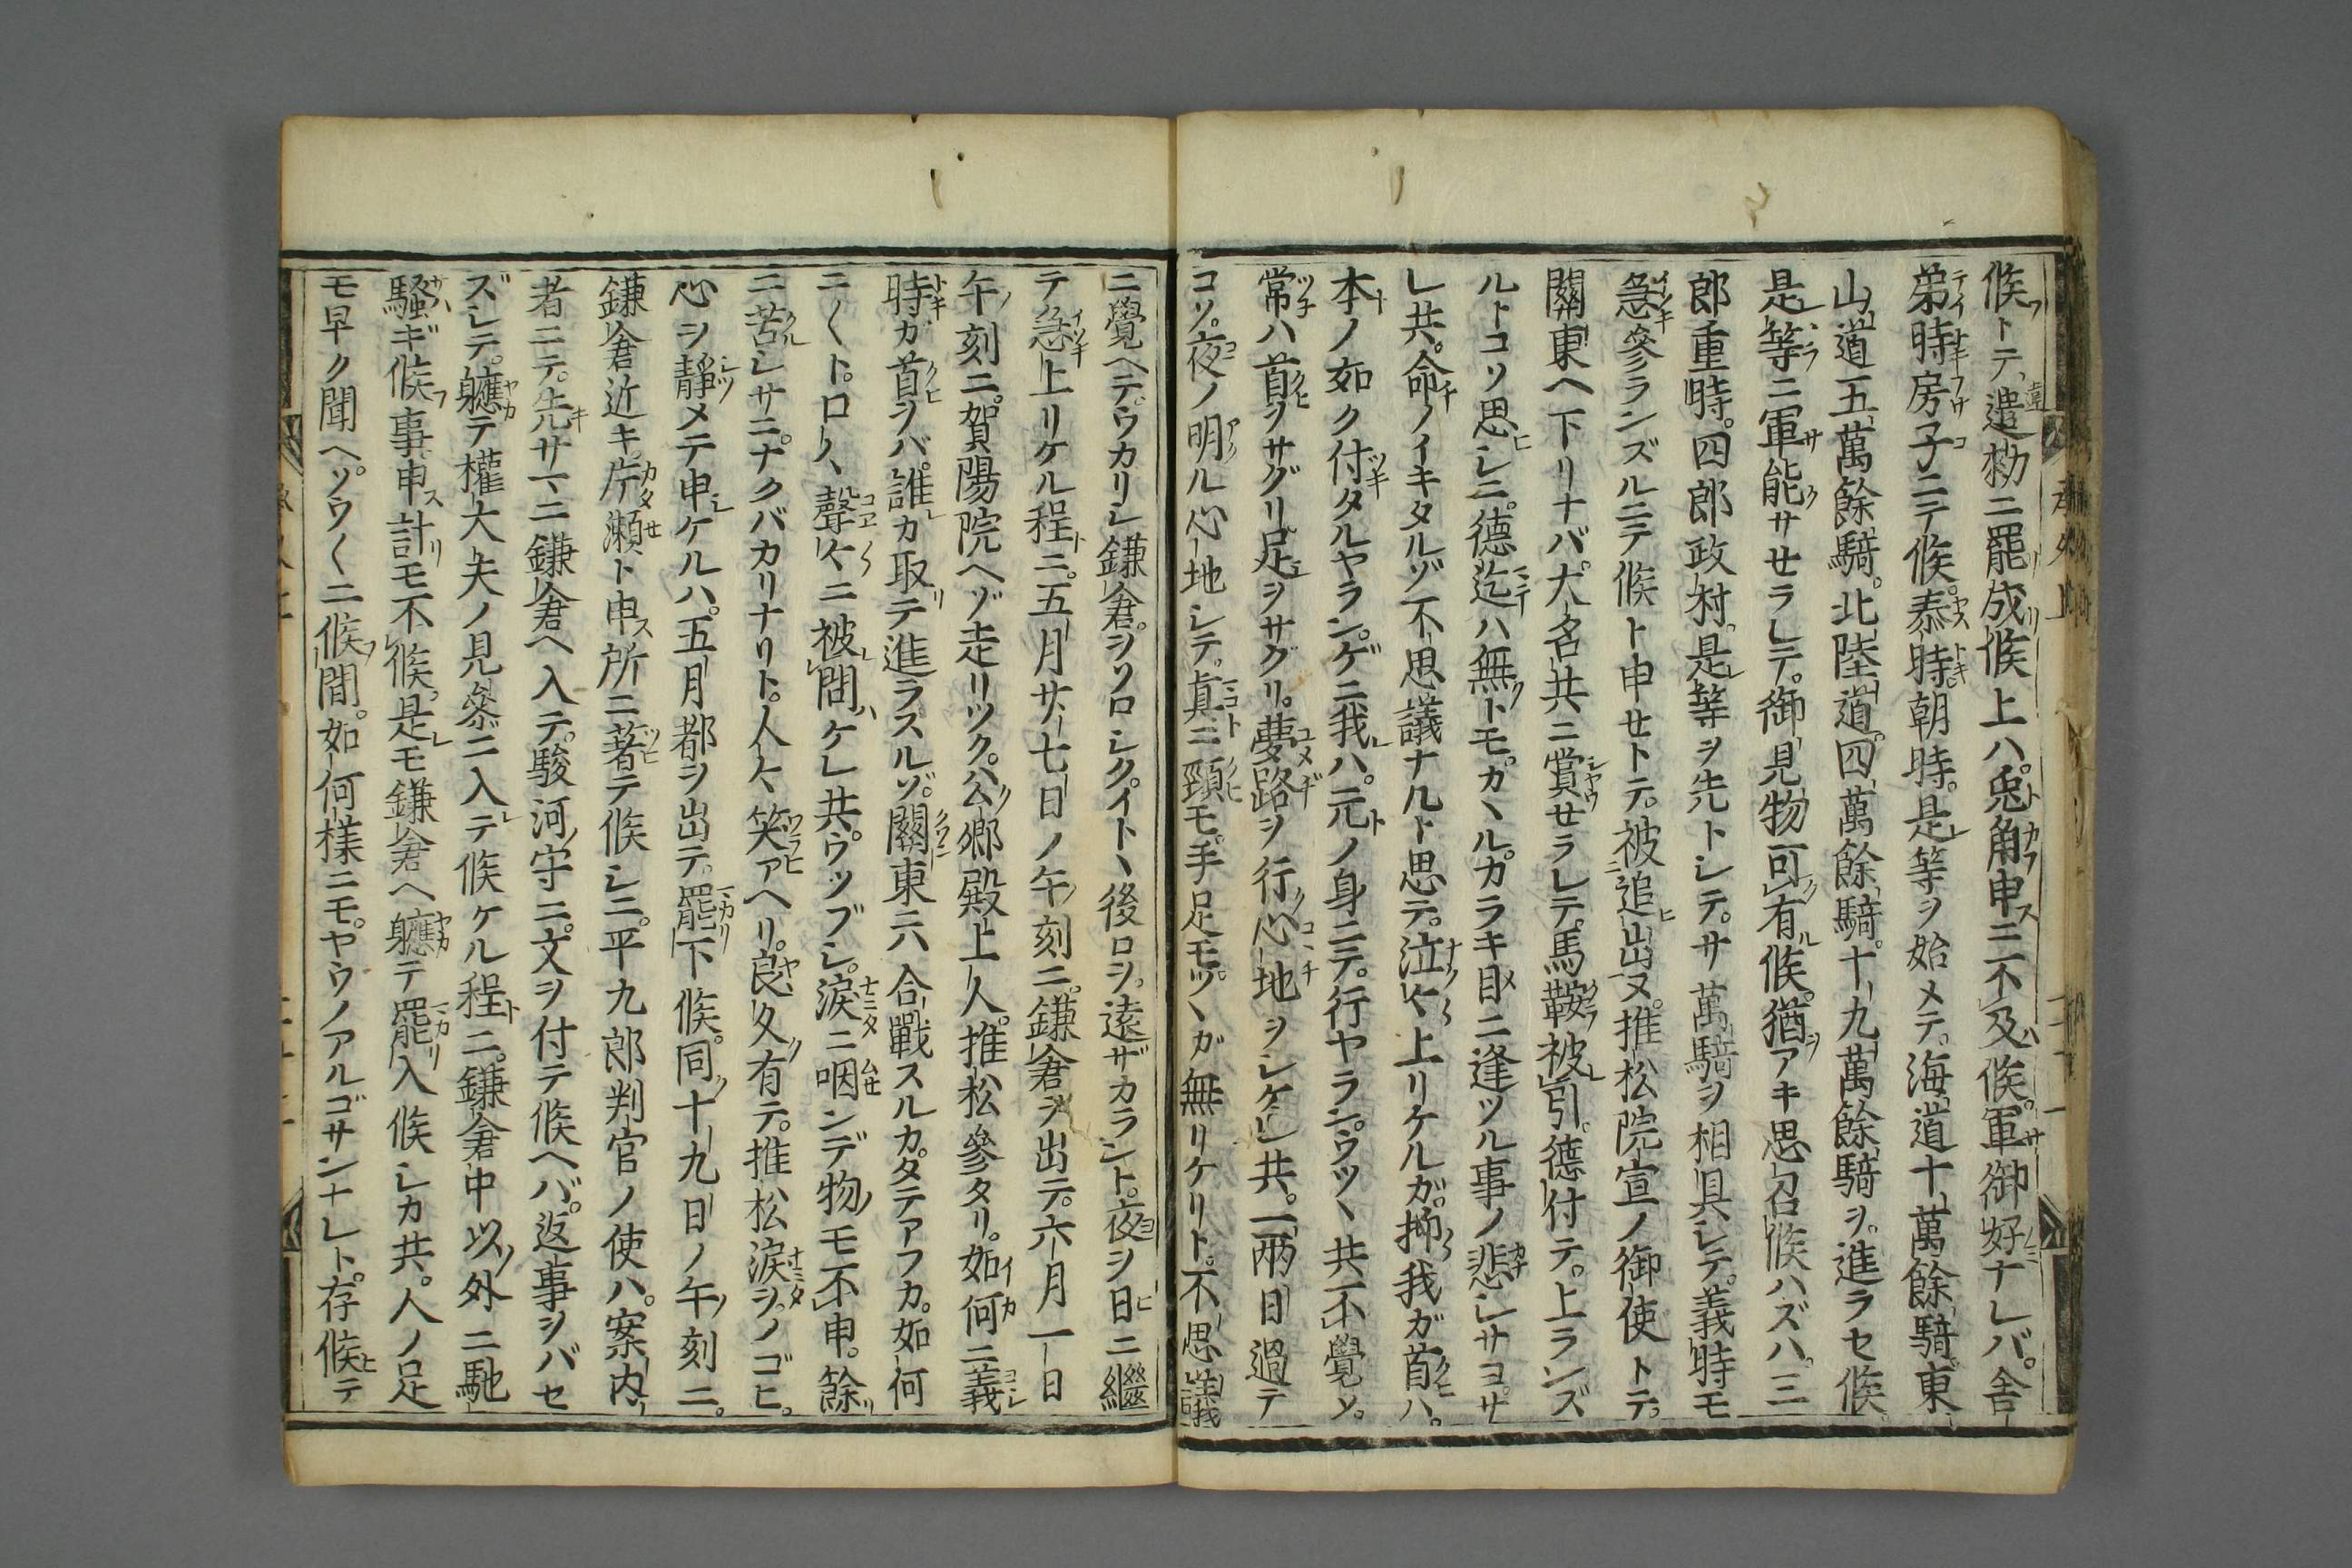 候トテ遣勅ニ罷成候上ハ。兎角申ニ不及候。軍御好ナレバ。舎
弟時房子ニテ候。泰時。朝時。是等ヲ始メテ。海道十萬餘騎。東
山道五萬餘騎。北陸道四萬餘騎。十九萬餘騎ヲ。進ラセ候
是等ニ軍能サセラレテ。御見物可有候。猶アキ思召候ハズハ。三
郎重時。四郎政村。是等ヲ先トシテ。廿萬騎ヲ相具シテ。義時モ
急參ランズルニテ候ト申セトテ。被追出ヌ。推松院宣ノ御使トテ。
關東ヘ下リナバ。大名共ニ賞セラレテ。馬鞍被引。德付テ。上ランズ
ルトコソ思シニ。德迄ハ無トモ。カヽル。カラキ目ニ逢ツル事ノ悲シサヨサ
レ共。命ノイキタルゾ不思議ナルト思テ。泣々上リケルガ。抑我ガ首ハ。
本ノ如ク付タルヤラン。ゲニ我ハ。元ノ身ニテ。行ヤラン。ウツヽ共不覺ソ。
常ハ首ヲサグリ足ヲサグリ。夢路ヲ行心地ヲシケレ共。一兩日過テ
コソ。夜ノ明ル心地シテ。眞ニ頸モ。手足モ。ツヽガ無リケリト。不思議
ニ覺ヘテ。ウカリシ鎌倉。ヲソロシク。イトヽ後ロヲ。遠ザカラント。夜ヲ日ニ繼
テ急上リケル程ニ。五月廿七日ノ午刻ニ。鎌倉ヲ出テ。六月一日
午刻ニ。賀陽院ヘゾ走リツク。公卿殿上人。推松參タリ。如何ニ義
時ガ首ヲバ。誰カ取テ進ラスルゾ。關東ニハ合戰スルカ。タテアフカ。如何
ニ〱ト。口々聲々ニ被問ケレ共。ウツブシ。淚ニ咽ンデ物モ不申。餘
ニ苦シサニ。ナクバカリナリト。人々笑アヘリ。良久有テ。推松淚ヲ。ノゴヒ。
心ヲ靜メテ申ケルハ。五月都ヲ出テ。罷下候。同十九日ノ午刻ニ。
鎌倉近キ。片瀬ト申所ニ著テ候シニ。平九郎判官ノ使ハ。案内
者ニテ。先サマニ鎌倉ヘ入テ。駿河守ニ。文ヲ付テ候ヘバ。返事ヲバセ
ズシテ。軈テ權大夫ノ見參ニ入テ候ケル程ニ。鎌倉中以外ニ馳
騷ギ候事申計モ不候。是モ鎌倉ヘ軈テ罷入候シカ共。人ノ足
モ早ク聞ヘ。ソウ〱ニ候間。如何樣ニモ。ヤウノアルゴサンナレト。存候テ